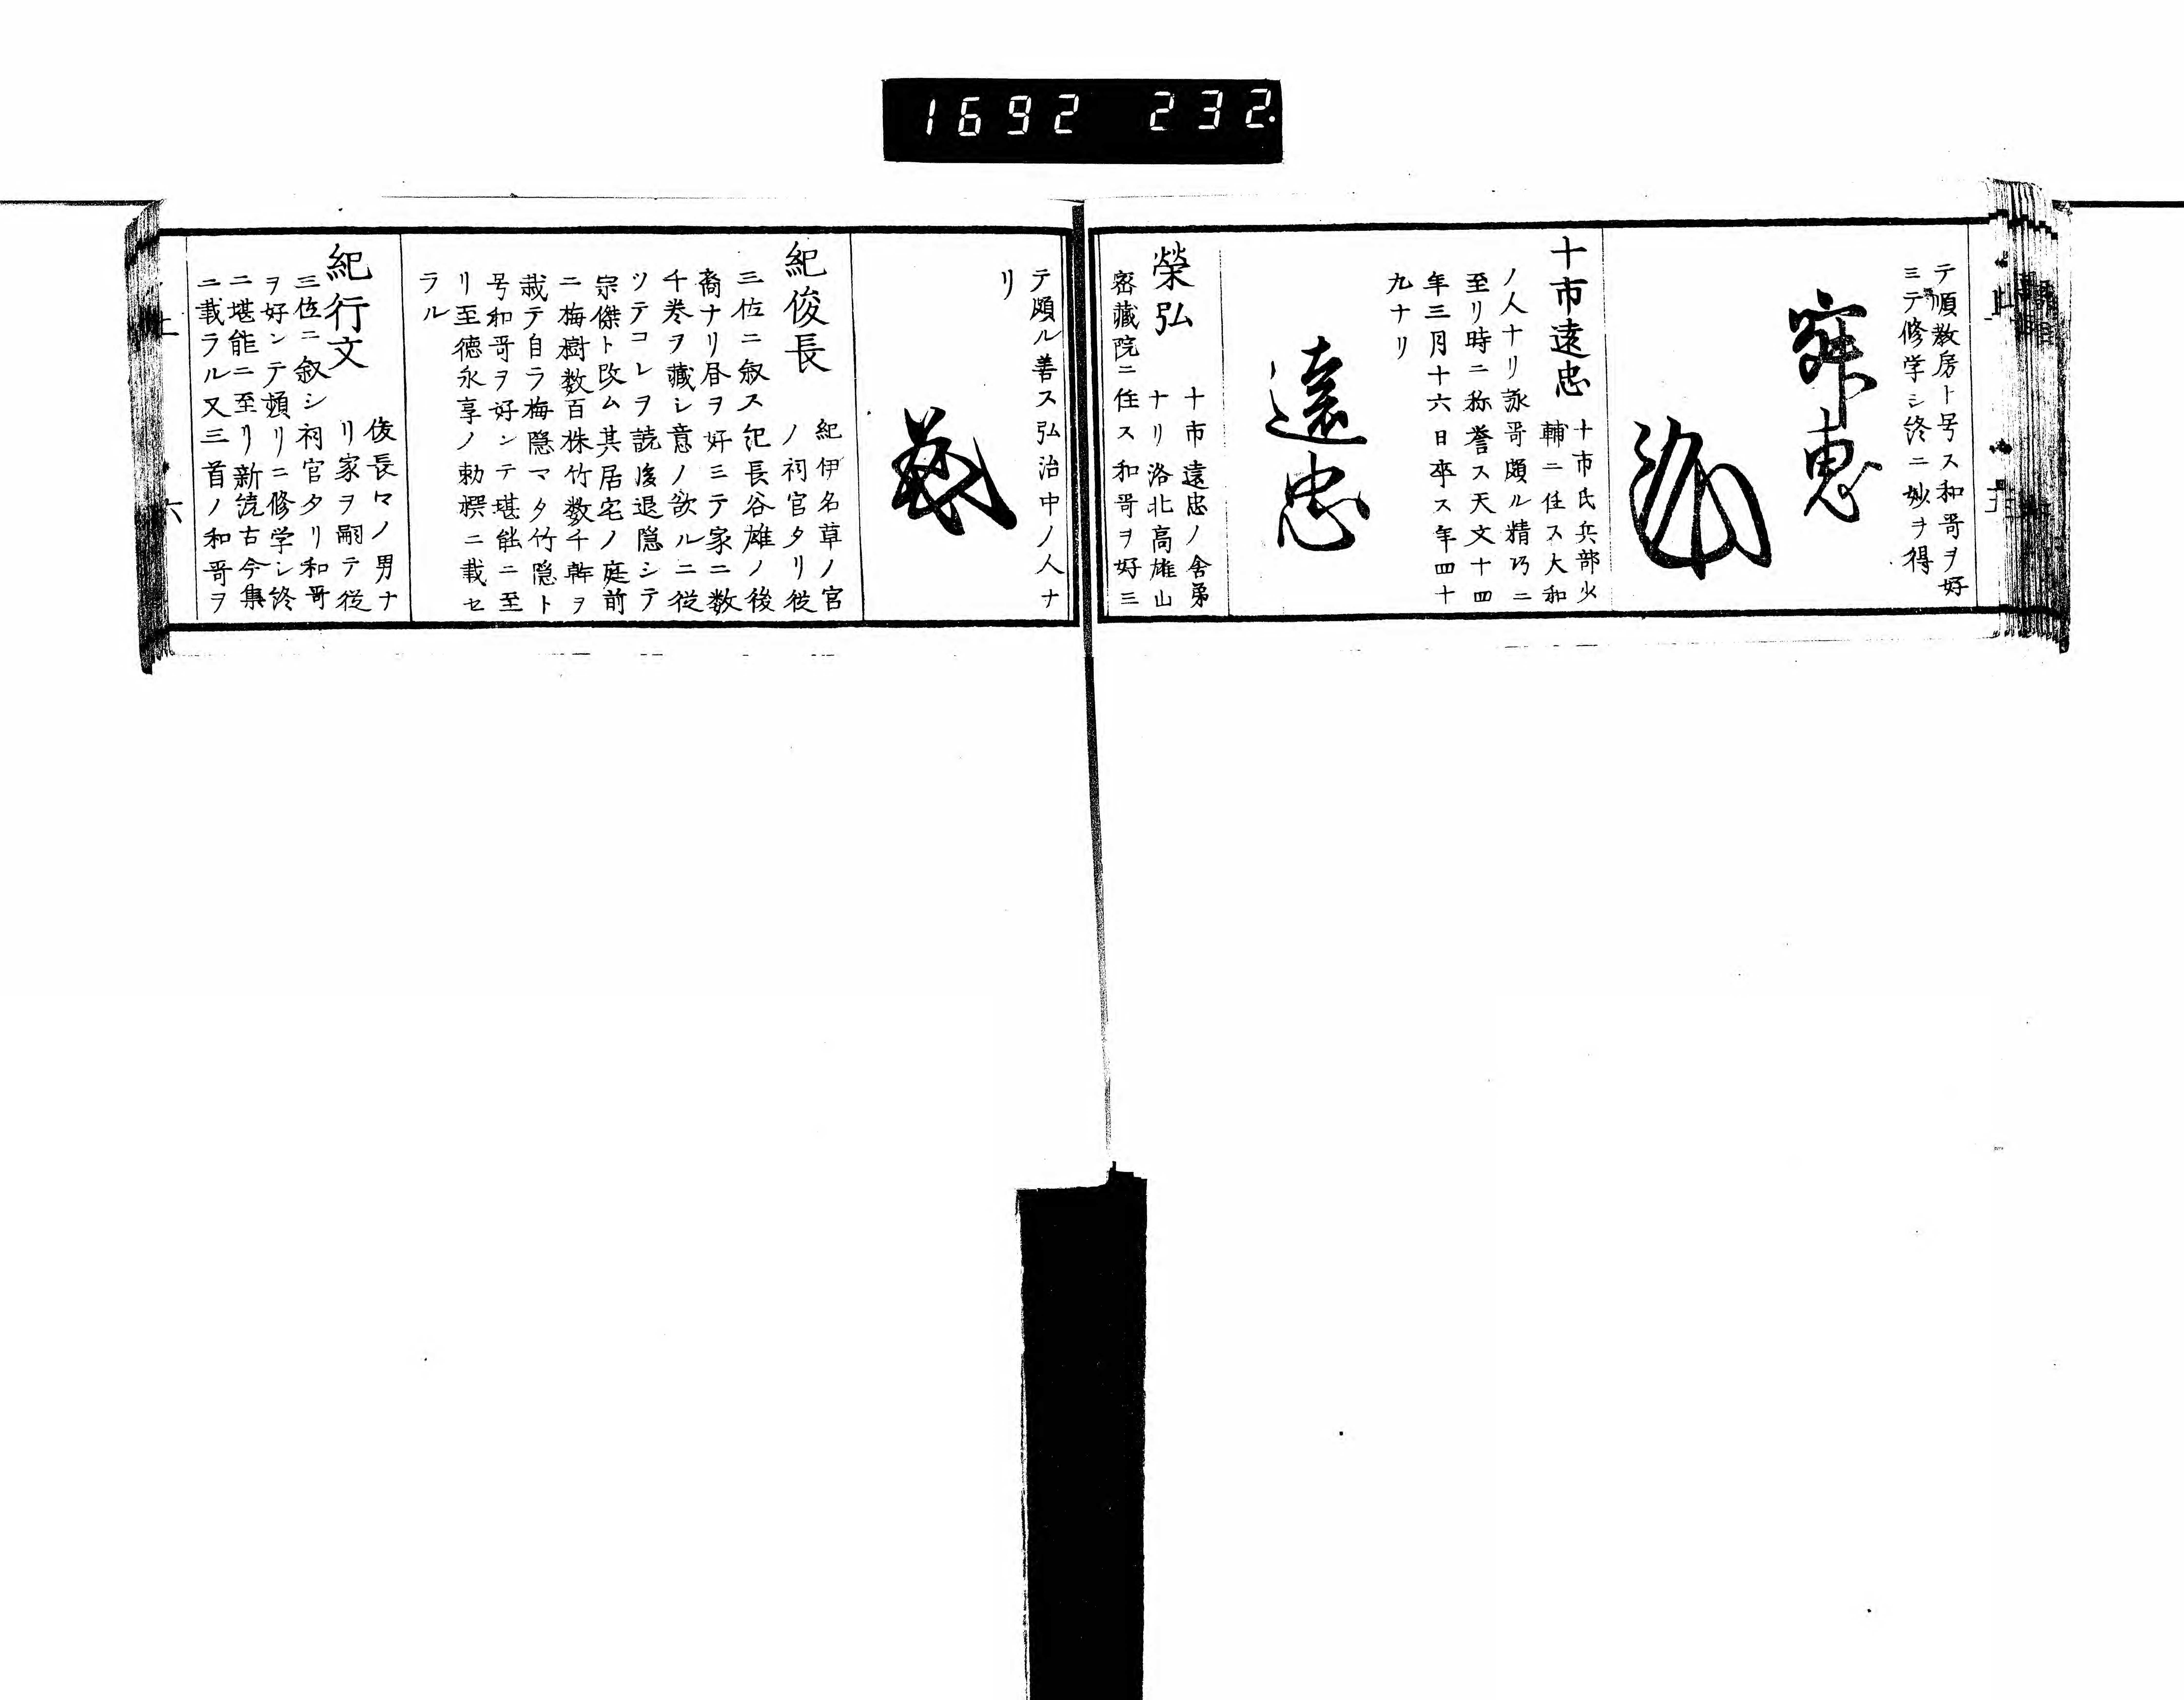 1692 232
テ順教房ト号ス和哥ヲ好
ミテ修学シ終ニ妙ヲ得
十市遠忠
十市氏兵部少
輔ニ任ス大和
ノ人ナリ詠哥頗ル精巧ニ
至リ時ニ称誉ス天文十四
年三月十六日卒ス年四十
九ナリ
遠忠
榮弘
十市遠忠ノ舎弟
ナリ洛北高雄山
密藏院ニ住ス和哥ヲ好ミ
テ頗ル善ス弘治中ノ人ナ
リ
紀俊長
紀伊名草ノ官
ノ祠官タリ従
三位ニ叙ス紀長谷雄ノ後
裔ナリ昼ヲ好ミテ家ニ数
千巻ヲ藏シ意ノ欲ルニ従
ツテコレヲ読後退隠シテ
宗傑ト改ム其居宅ノ庭前
ニ梅樹数百株竹数千幹ヲ
栽テ自ラ梅隠マタ竹隠ト
号和哥ヲ好ンテ堪能ニ至
リ至徳永享ノ勅撰ニ載セ
ラル
紀行文
俊長マノ男ナ
リ家ヲ嗣テ従
三位ニ叙シ祠官タリ和哥
ヲ好ンテ頻リニ修学シ終
ニ堪能ニ至リ新続古今集
ニ載ラル又三首ノ和哥ヲ
上
六